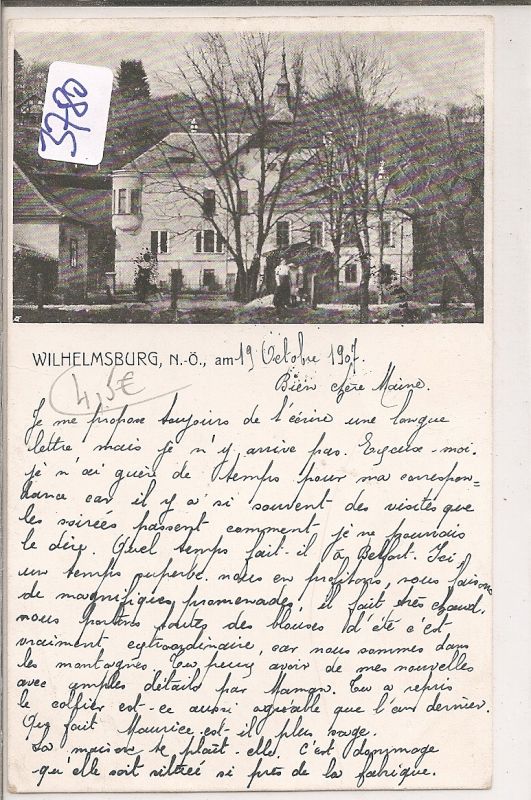 3780
WILHELMSBURG, N.-Ö., am 19 Octobre 1907.
4,5€
Bien chère Maine.
Je me propose toujours de t'écrire une longue
lettre mais je n'y arrive pas. Excuse-moi.
je n'ai guère de temps pour ma correspon-
dance car il y a si souvent des visites que
les soirées passent comment je ne pourrais
le dire. Quel temps fait-il à Belfort. Ici
un temps superbe. nous en profitons, nous faisons
de magnifiques promenades, il fait très chaud,
nous portons toutes des blouses d'été c'est
vraiment extraordinaire, car nous sommes dans
les montagnes. Tu peux avoir de mes nouvelles
avec amples détails par Maman. Tu a repris
le collier est-ce aussi agréable que l'an dernier.
Que fait Maurice est-il plus sage.
La maison te plaît-elle. C'est dommage
qu'elle soit située si près de la fabrique.